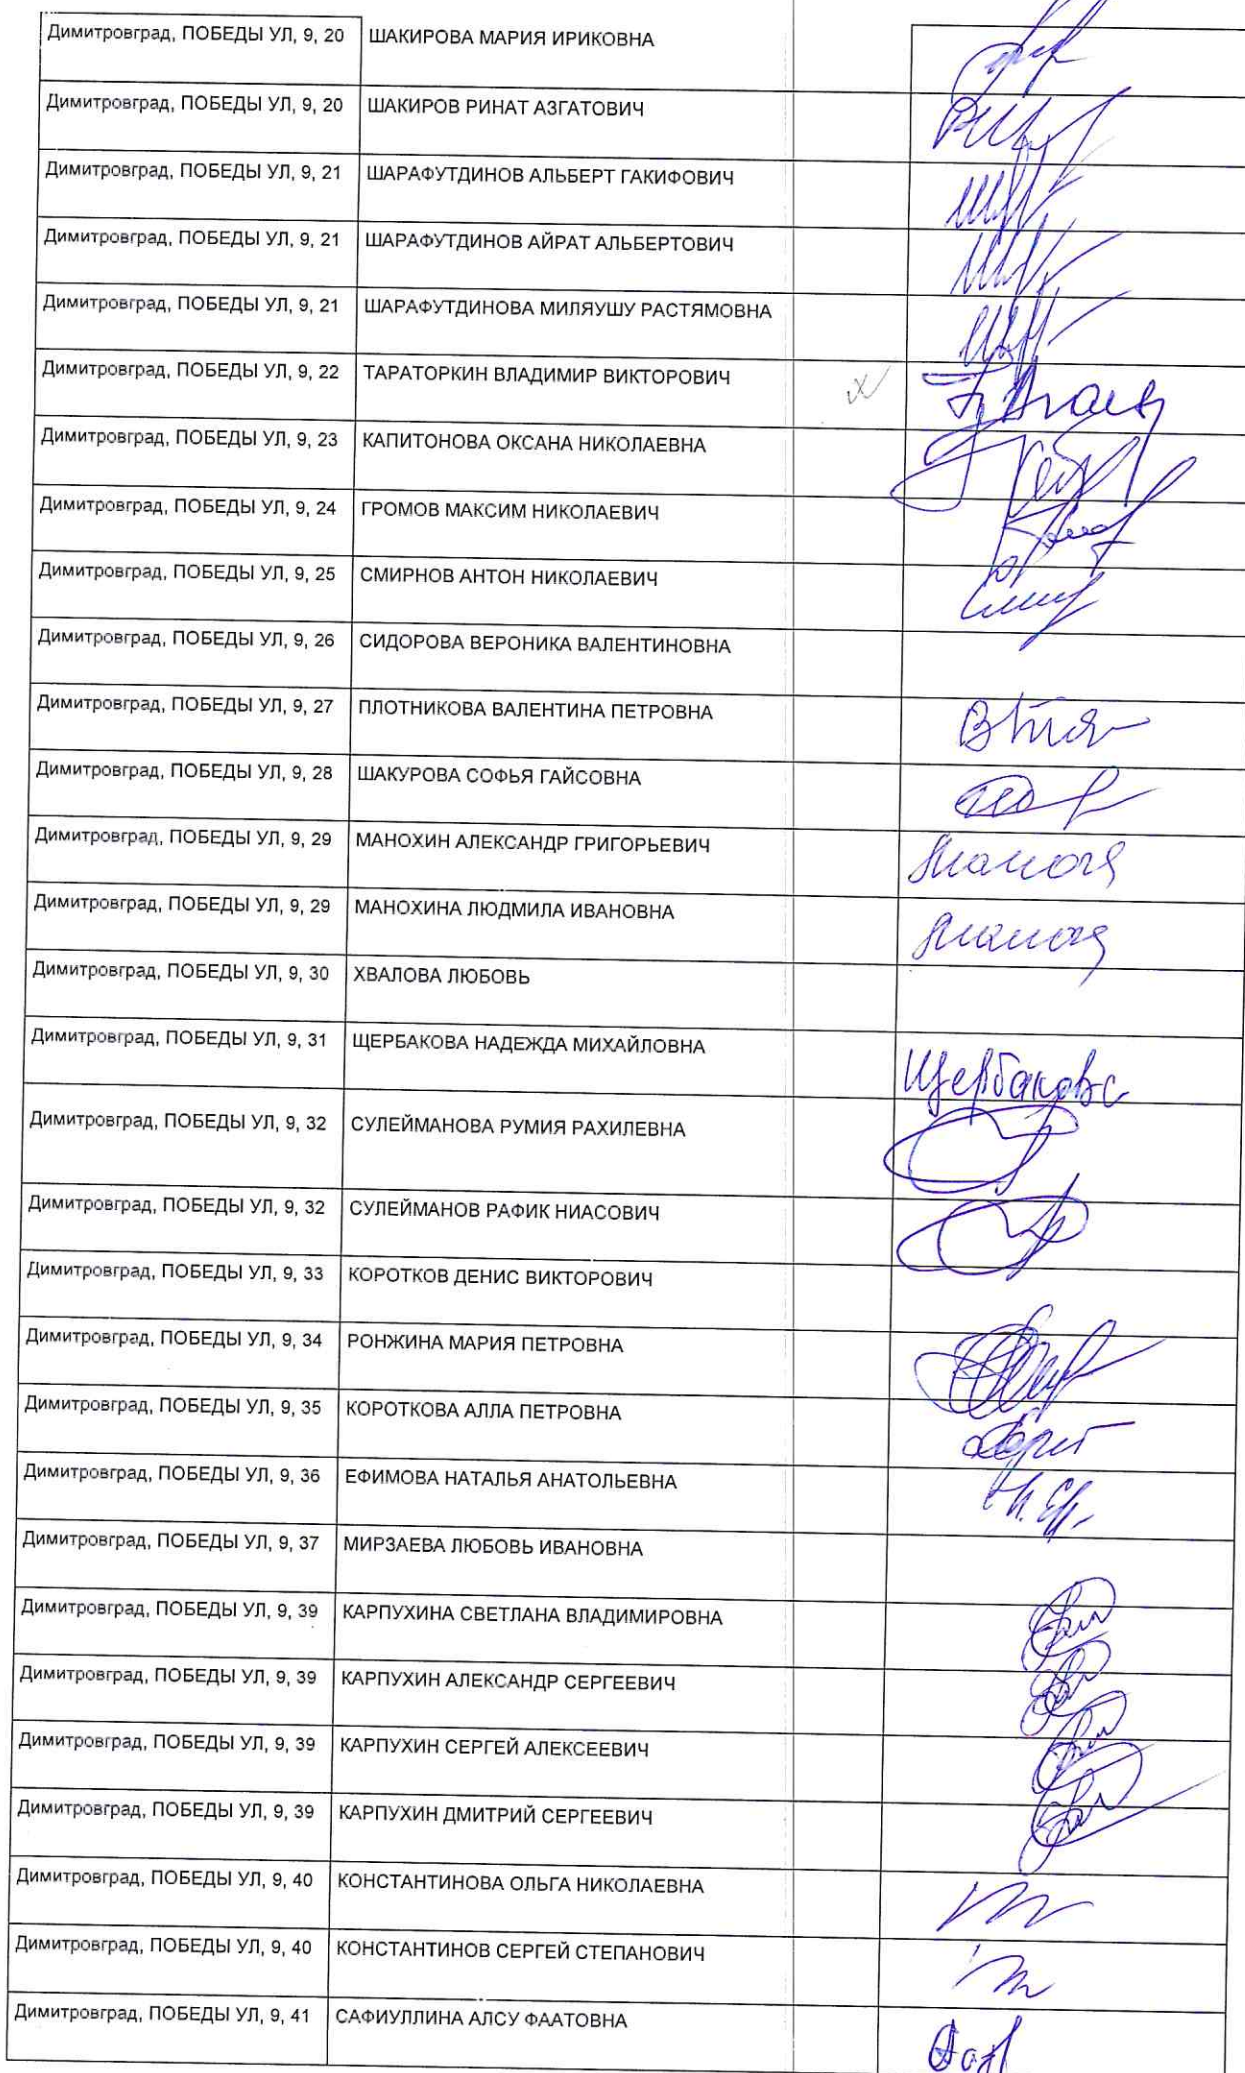 Димитровград, ПОБЕДЫ УЛ, 9, 20 ШАКИРОВА МАРИЯ ИРИКОВНА
Димитровград, ПОБЕДЫ УЛ, 9, 20 ШАКИРОВ РИНАТ АЗГАТОВИЧ
Димитровград, ПОБЕДЫ УЛ, 9, 21 ШАРАФУТДИНОВ АЛЬБЕРТ ГАКИФОВИЧ
Димитровград, ПОБЕДЫ УЛ, 9, 21 ШАРАФУТДИНОВ АЙРАТ АЛЬБЕРТОВИЧ
Димитровград, ПОБЕДЫ УЛ, 9, 21 ШАРАФУТДИНОВА МИЛЯУШУ РАСТЯМОВНА
Димитровград, ПОБЕДЫ УЛ, 9, 22 ТАРАТОРКИН ВЛАДИМИР ВИКТОРОВИЧ
Димитровград, ПОБЕДЫ УЛ, 9, 23 КАПИТОНОВА ОКСАНА НИКОЛАЕВНА
Димитровград, ПОБЕДЫ УЛ, 9, 24 ГРОМОВ МАКСИМ НИКОЛАЕВИЧ
Димитровград, ПОБЕДЫ УЛ, 9, 25 СМИРНОВ АНТОН НИКОЛАЕВИЧ
Димитровград, ПОБЕДЫ УЛ, 9, 26 СИДОРОВА ВЕРОНИКА ВАЛЕНТИНОВНА
Димитровград, ПОБЕДЫ УЛ, 9, 27 ПЛОТНИКОВА ВАЛЕНТИНА ПЕТРОВНА
Димитровград, ПОБЕДЫ УЛ, 9, 28 ШАКУРОВА СОФЬЯ ГАЙСОВНА
Димитровград, ПОБЕДЫ УЛ, 9, 29 МАНОХИН АЛЕКСАНДР ГРИГОРЬЕВИЧ
Димитровград, ПОБЕДЫ УЛ, 9, 29 МАНОХИНА ЛЮДМИЛА ИВАНОВНА
Димитровград, ПОБЕДЫ УЛ, 9, 30 ХВАЛОВА ЛЮБОВЬ
Димитровград, ПОБЕДЫ УЛ, 9, 31 ЩЕРБАКОВА НАДЕЖДА МИХАЙЛОВНА Щербакова
Димитровград, ПОБЕДЫ УЛ, 9, 32 СУЛЕЙМАНОВА РУМИЯ РАХИЛЕВНА
Димитровград, ПОБЕДЫ УЛ, 9, 32 СУЛЕЙМАНОВ РАФИК НИАСОВИЧ
Димитровград, ПОБЕДЫ УЛ, 9, 33 КОРОТКОВ ДЕНИС ВИКТОРОВИЧ
Димитровград, ПОБЕДЫ УЛ, 9, 34 РОНЖИНА МАРИЯ ПЕТРОВНА
Димитровград, ПОБЕДЫ УЛ, 9, 35 КОРОТКОВА АЛЛА ПЕТРОВНА
Димитровград, ПОБЕДЫ УЛ, 9, 36 ЕФИМОВА НАТАЛЬЯ АНАТОЛЬЕВНА
Димитровград, ПОБЕДЫ УЛ, 9, 37 МИРЗАЕВА ЛЮБОВЬ ИВАНОВНА
Димитровград, ПОБЕДЫ УЛ, 9, 39 КАРПУХИНА СВЕТЛАНА ВЛАДИМИРОВНА
Димитровград, ПОБЕДЫ УЛ, 9, 39 КАРПУХИН АЛЕКСАНДР СЕРГЕЕВИЧ
Димитровград, ПОБЕДЫ УЛ, 9, 39 КАРПУХИН СЕРГЕЙ АЛЕКСЕЕВИЧ
Димитровград, ПОБЕДЫ УЛ, 9, 39 КАРПУХИН ДМИТРИЙ СЕРГЕЕВИЧ
Димитровград, ПОБЕДЫ УЛ, 9, 40 КОНСТАНТИНОВА ОЛЬГА НИКОЛАЕВНА
Димитровград, ПОБЕДЫ УЛ, 9, 40 КОНСТАНТИНОВ СЕРГЕЙ СТЕПАНОВИЧ
Димитровград, ПОБЕДЫ УЛ, 9, 41 САФИУЛЛИНА АЛСУ ФААТОВНА